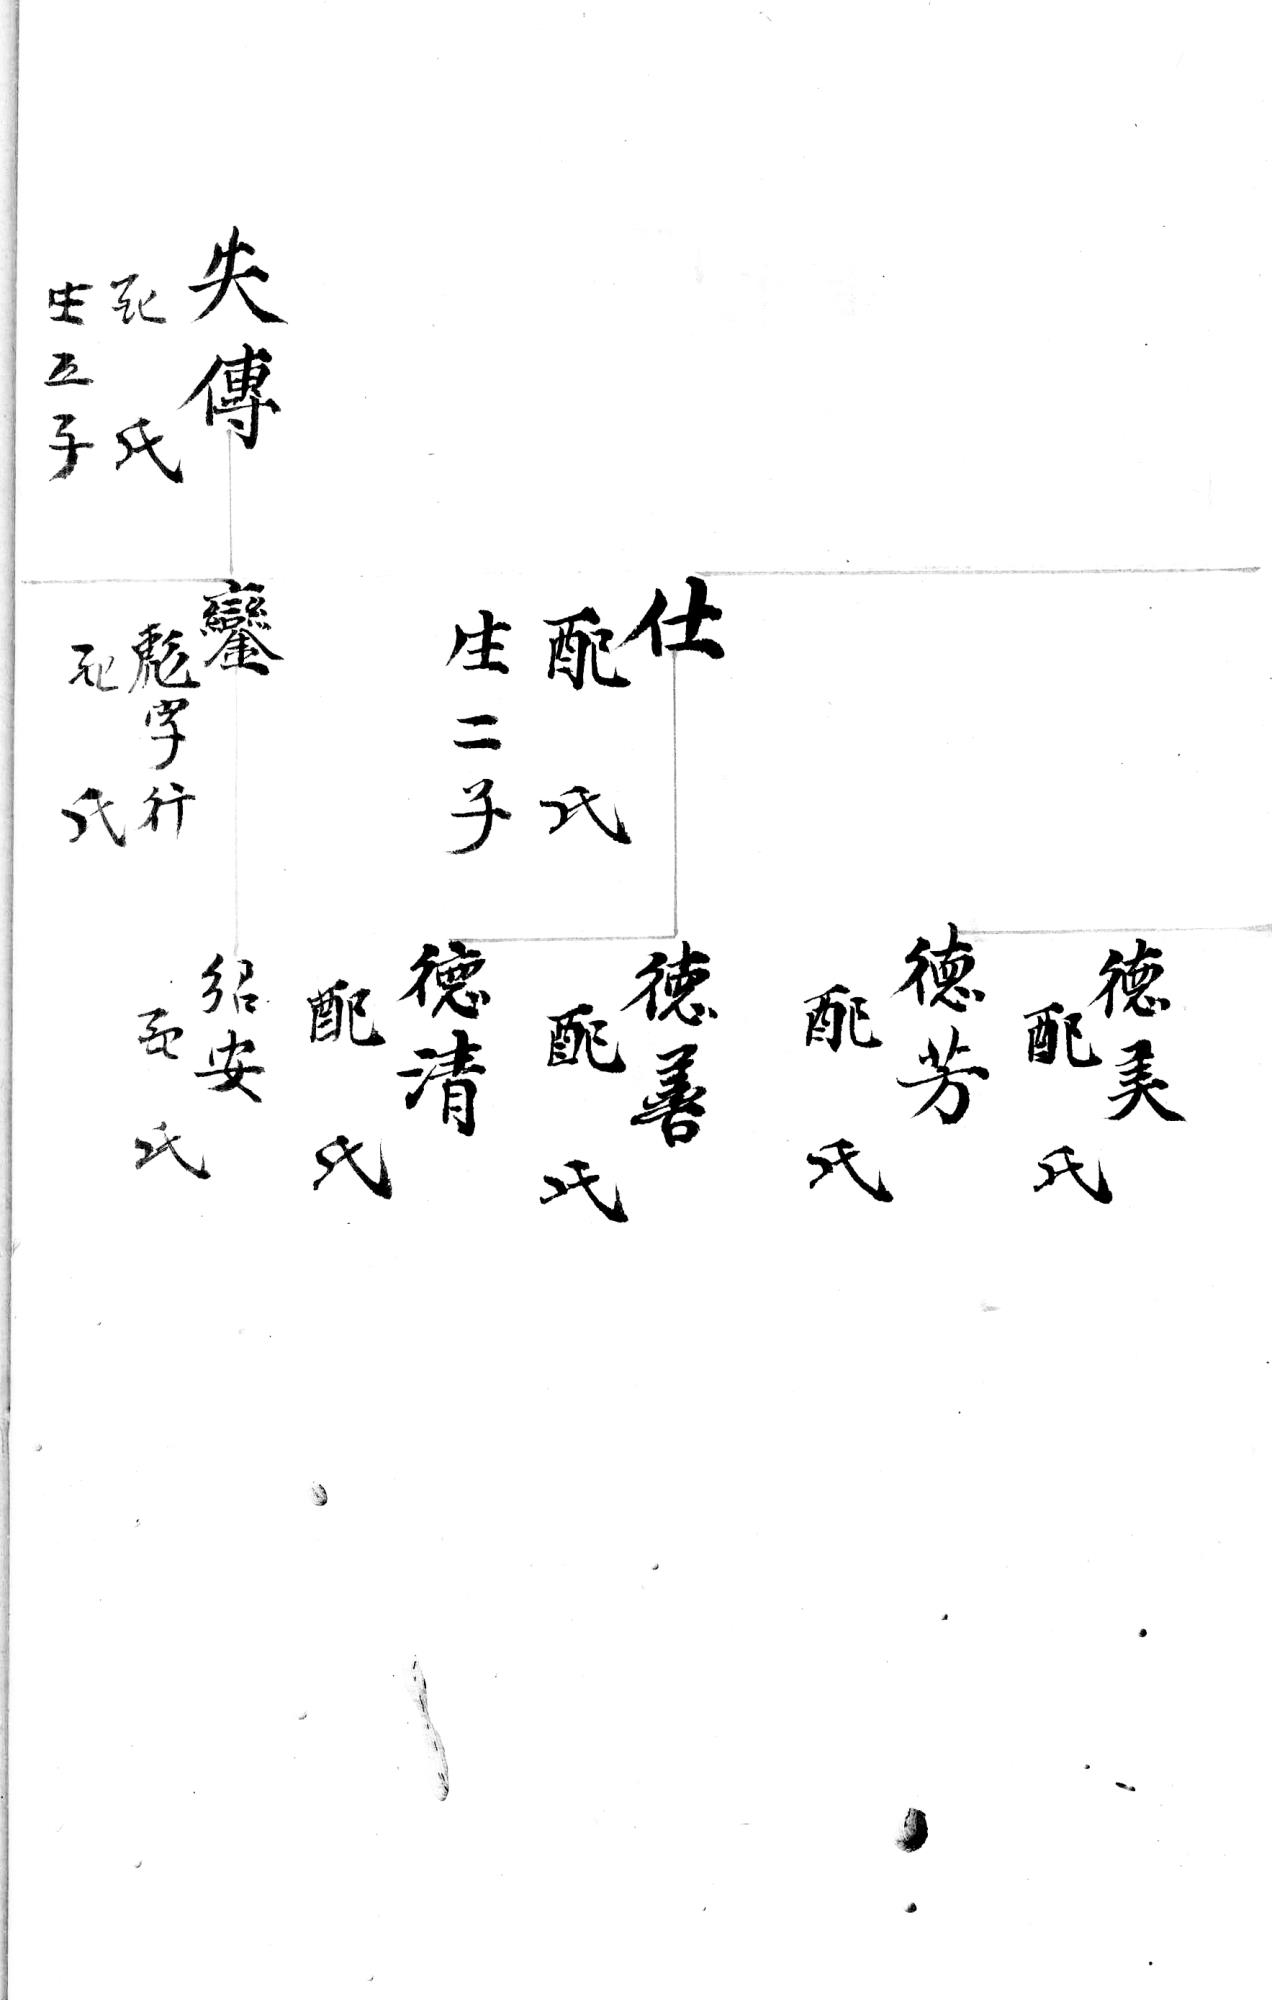 失傳
配 氏
生五子
仕
配 氏
生二子
鑾
彪字行
配 氏
德美
配 氏
德芳
配 氏
德善
配 氏
德清
配 氏
紹安
配 氏